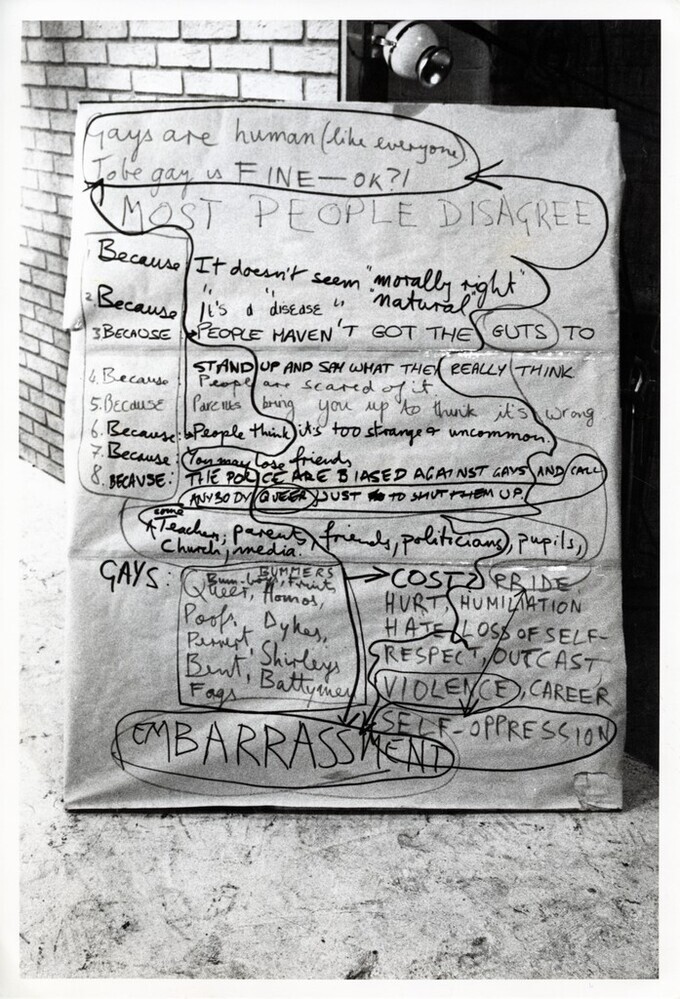 Gays are human (like everyone).
To be gay is FINE — OK?!
MOST PEOPLE DISAGREE
1. Because It doesn't seem "morally right"
" " " "natural"
2. Because It's a "disease"
3 BECAUSE PEOPLE HAVEN'T GOT THE GUTS TO
STAND UP AND SAY WHAT THEY REALLY THINK
4. Because: People are scared of it.
5. BECAUSE Parents bring you up to think it's wrong
6. Because: People think it's too strange & uncommon.
7. Because: You may lose friends
8. BECAUSE: THE POLICE ARE BIASED AGAINST GAYS AND CALL
ANYBODY QUEER JUST TO SHUT THEM UP.
some
Teachers, parents, friends, politicians, pupils,
Church, media.
GAYS:
BUMMERS
Bum-boys, Fruits
Queer, Homos,
Poofs, Dykes,
Pervert, Shirleys
Bent, Battymen
Fags
COST? PRIDE,
HURT, HUMILIATION
HATE, LOSS OF SELF-
RESPECT, OUTCAST,
VIOLENCE, CAREER
SELF-OPPRESSION
EMBARRASSMENT